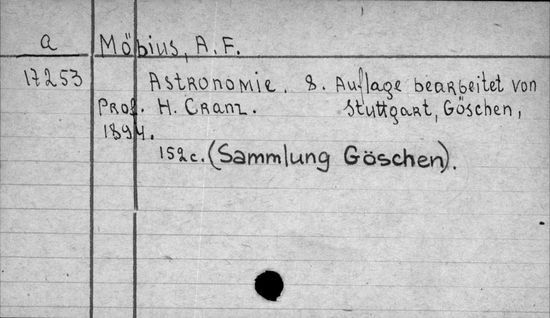 a Möbius, A. F.
17253 Astronomie. 8. Auflage bearbeitet von
Prof. H. Cranz. Stuttgart, Göschen,
1894.
152c. (Sammlung Göschen).